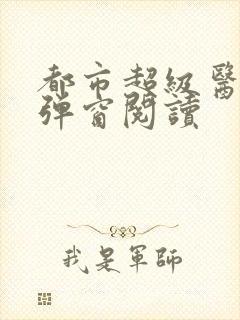 都市超級醫
彈窗閱讀
我是軍師